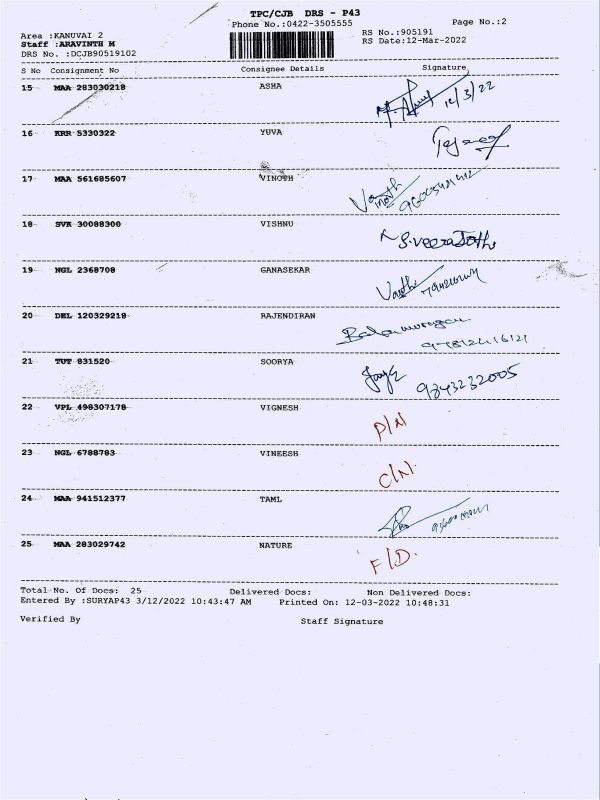 TPC/CJB DRS - P43
Phone No.:0422-3505555
Page No.:2
Area :KANUVAI 2
RS No.:905191
Staff :ARAVINTH M
RS Date:12-Mar-2022
DRS No. :DCJB90519102
S No Consignment No Consignee Details Signature
15 MAA 283030218 ASHA 12/3/22
16 KRR 5330322 YUVA
17 MAA 561685607 VINOTH
18 SVK 30088300 VISHNU
19 NGL 2368708 GANASEKAR
20 DEL 120329218 RAJENDIRAN Balamurugan
21 TUT 831520 SOORYA 9843232005
22 VPL 498307178 VIGNESH D/N
23 NGL 6788783 VINEESH C/N
24 MAA 941512377 TAML
25 MAA 283029742 NATURE F/D.
Total No. Of Docs: 25 Delivered Docs: Non Delivered Docs:
Entered By :SURYAP43 3/12/2022 10:43:47 AM Printed On: 12-03-2022 10:48:31
Verified By Staff Signature